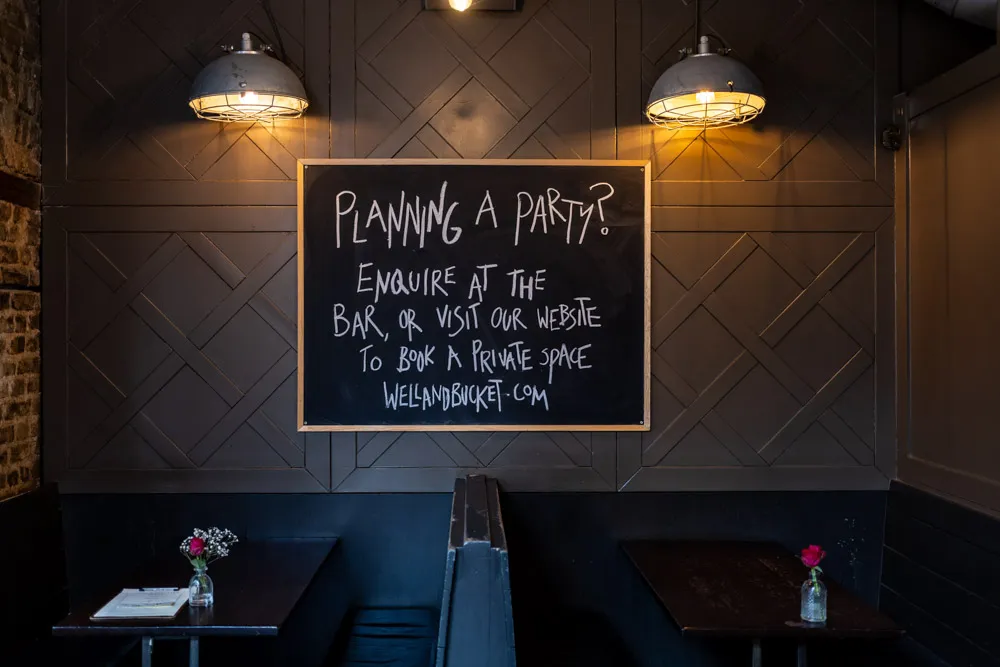 PLANNING A PARTY?
ENQUIRE AT THE
BAR, OR VISIT OUR WEBSITE
TO BOOK A PRIVATE SPACE
WELLANDBUCKET.COM